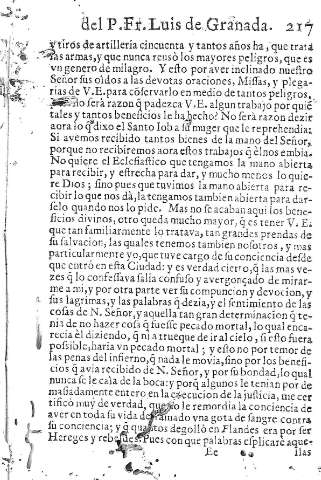 del P. Fr. Luis de Granada. 217
y tiros de artilleria cincuenta y tantos años ha, que trata
las armas, y que nunca reusò los mayores peligros, que es
vn genero de milagro. Y esto por aver inclinado nuestro
Señor sus oìdos a las devotas oraciones, Missas, y plega-
rias de V.E. para cõservarlo en medio de tantos peligros,
no serà razon q̃ padezca V.E. algun trabajo por quiẽ
tales y tantos beneficios le ha hecho? No serà razon dezir
aora lo q̃ dixo el Santo Iob a su muger que le reprehendia:
Si avemos recibido tantos bienes de la mano del Señor,
porque no recibiremos aora estos trabajos q̃ èl nos embia.
No quiere el Eclesiastico que tengamos la mano abierta
para recibir, y estrecha para dar, y mucho menos lo quie-
re Dios; sino pues que tuvimos la mano abierta para re-
cibir lo que nos dà, la tengamos tambien abierta para dar-
selo quando nos lo pide. Mas no se acaban aqui los bene-
ficios divinos, otro queda mucho mayor, q̃ es tener V.E.
que tan familiarmente lo tratava, tan grandes prendas de
su salvacion, las quales tenemos tambien nosotros, y mas
particularmente yo, que tuve cargo de su conciencia desde
que entrò en esta Ciudad: y es verdad cierto, q̃ las mas ve-
zes q̃ lo confessava salia confuso y avergonçado de mirar-
me a mi, y por otra parte ver su compuncion y devocion, y
sus lagrimas, y las palabras q̃ dezia, y el sentimiento de las
cosas de N. Señor, y aquella tan gran determinacion q̃ te-
nia de no hazer cosa q̃ fuesse pecado mortal, lo qual enca-
recia èl diziendo, q̃ ni a trueque de ir al cielo, si esto fuera
possible, haria vn pecado mortal; y esto no por temor de
las penas del infierno, q̃ nada le movia, sino por los benefi-
cios q̃ avia recibido de N. Señor, y por su bondad, lo qual
nunca se le caìa de la boca: y porq̃ algunos le tenian por de
masiadamente entero en la execucion de la justicia, me cer
tificò muy de verdad, que no le remordia la conciencia de
aver en toda su vida derramado vna gota de sangre contra
su conciencia; y q̃ quantos degollò en Flandes era por ser
Hereges y rebeldes. Pues con que palabras esplicarè aque-
Ee llas